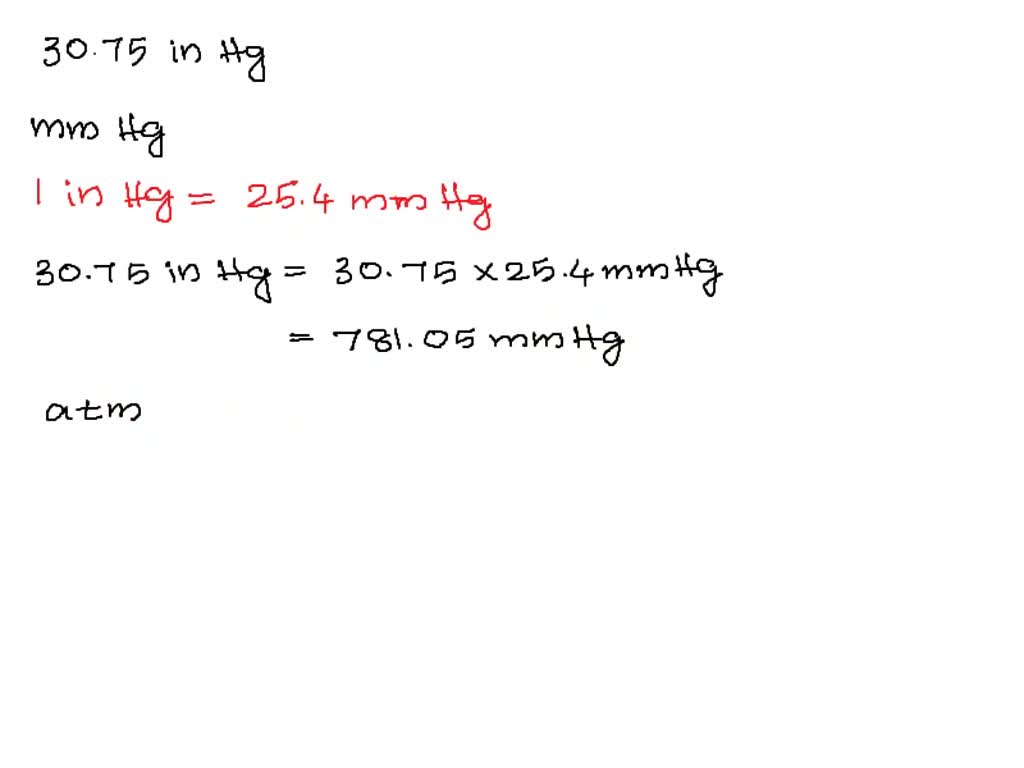 30.75 in Hg
mm Hg
1 in Hg = 25.4 mm Hg
30.75 in Hg = 30.75 × 25.4 mm Hg
= 781.05 mm Hg
atm